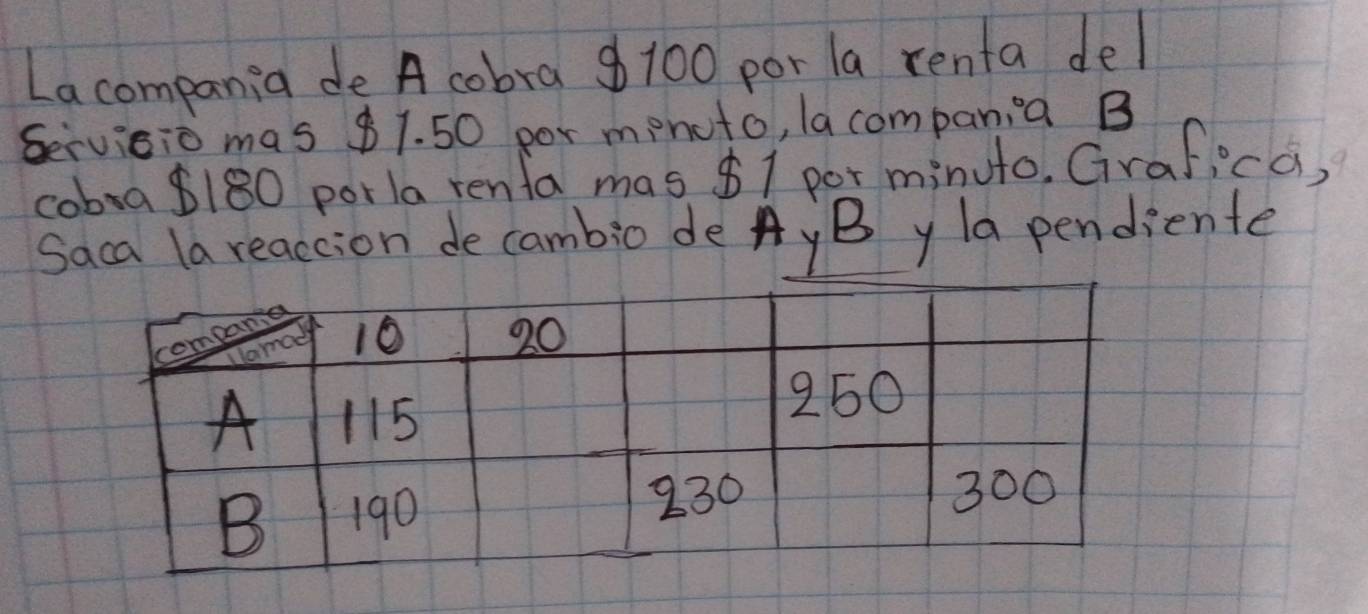 La compania de A cobra $100 por la renta del
Servicio mas $1.50 por minuto, la compania B
cobra $180 por la renta mas $1 por minuto. Grafica,
Saca la reaccion de cambio de A y B y la pendiente
compania llamada 10 20
A 115 250
B 190 230 300